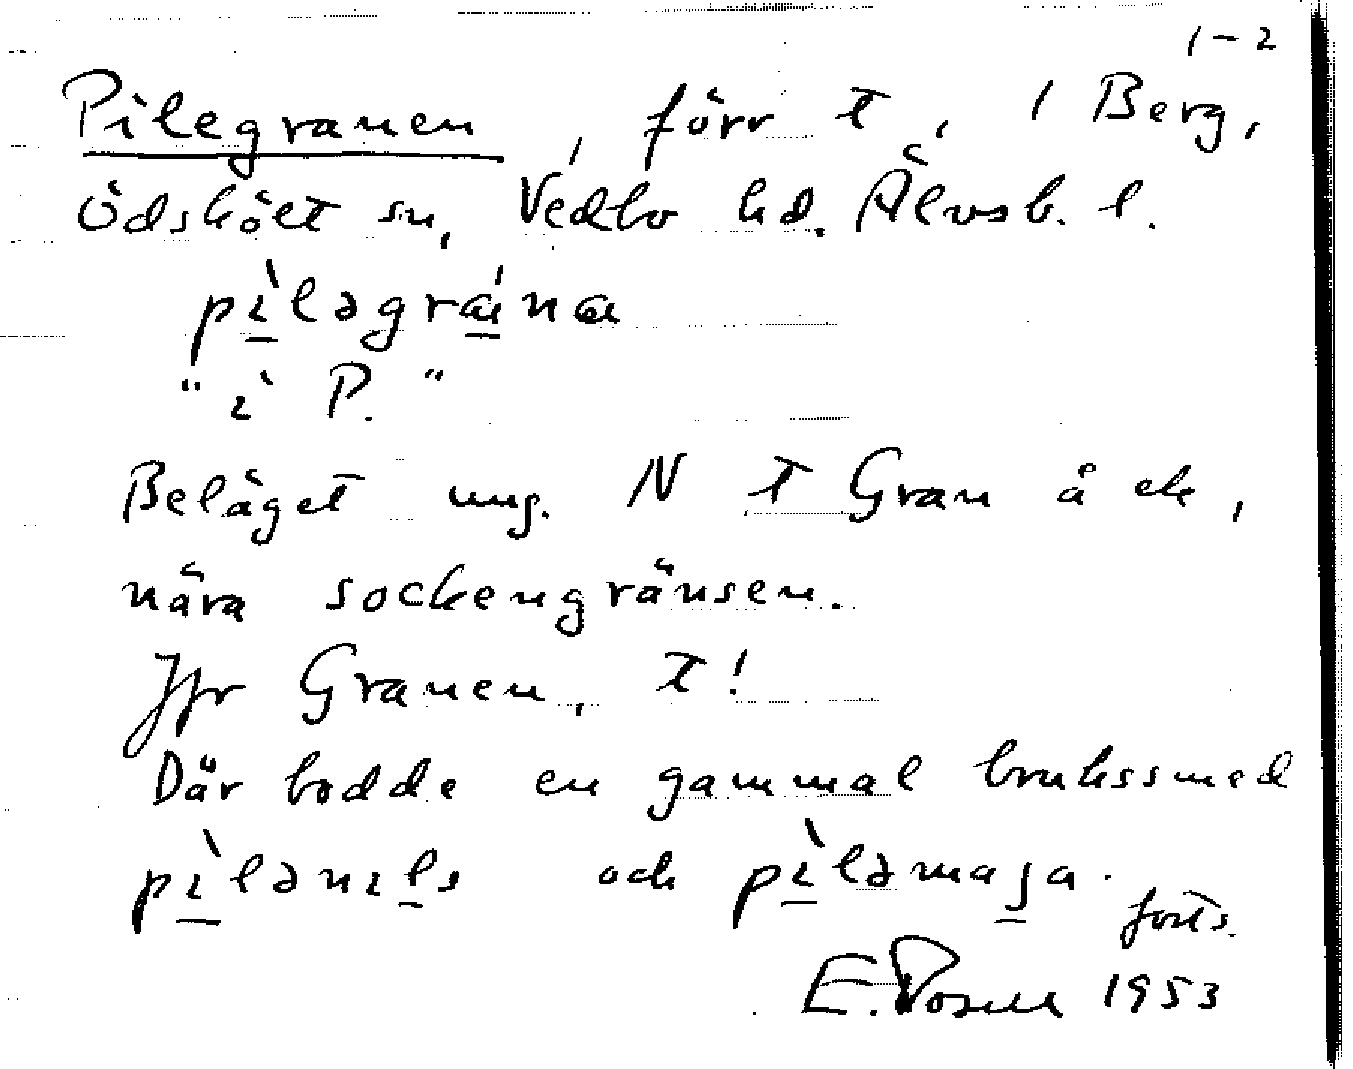 1-2
Pilegranen, förr t, 1 Berg,
Ödskölt sn, Vedbo hd. Älvsb. l.
pìləgrána
"i P."
Beläget ung. N t Gran å ek,
nära sockengränsen.
Jfr Granen, t!
Där bodde en gammal brukssmed
pìlənɪls och pìləmaja.
forts.
E. 1953